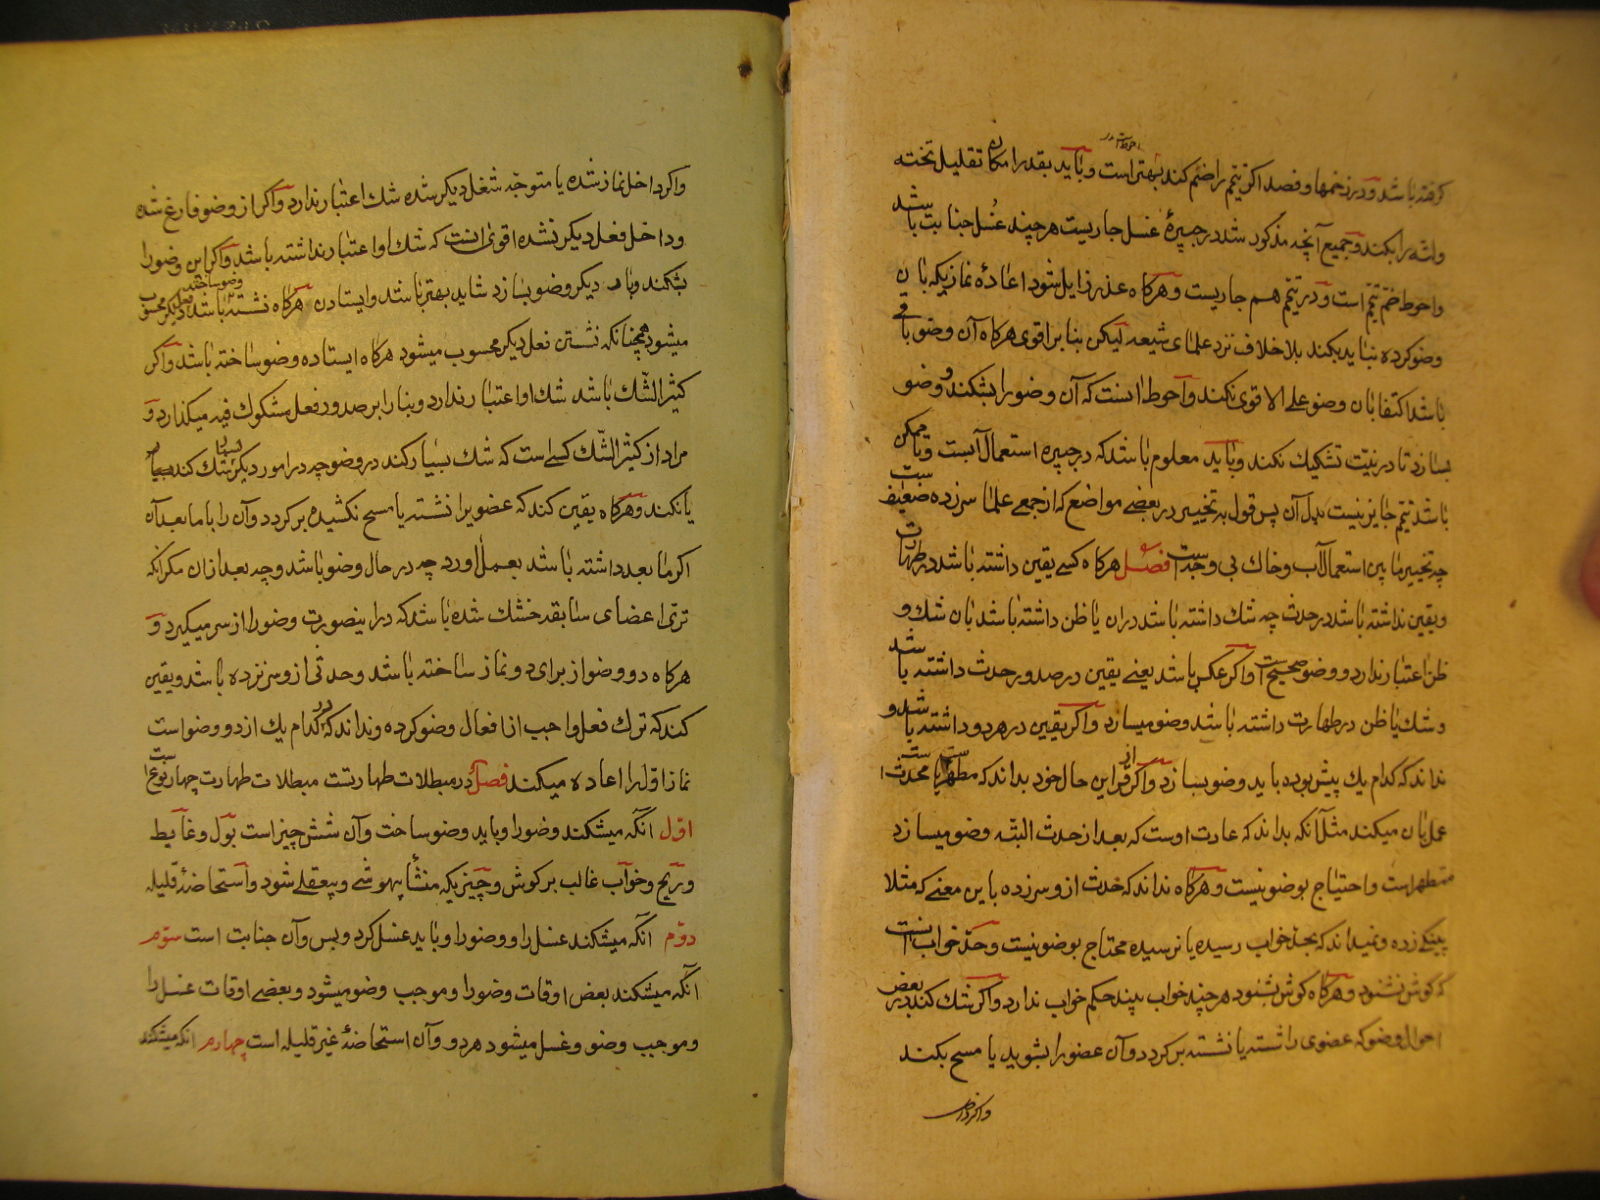 احوط است
کرفته باشد ودر زخمها وفصد اکر تیمم را ضم کند بهتر است وباید بقدر امکان تقلیل تخته
ولته را بکند وجمیع آنچه مذکور شد در جبیرۀ غسل جاریست هر چند غُسل جنابت باشد
واحوط ضم تیمم است ودر تیمم هم جاریست وهرکاه عذر زایل شود اعادۀ نمازیکه بان
وضو کرده نباید بکند بلا خلاف نزد علمای شیعه لیکن بنا بر اقوی هرکاه آن وضو باقی
باشد اکتفا بان وضو علی الاقوی نکند واحوط انست که آن وضو را بشکند و وضو
بسازد تا در نیت تشکیک نکند وباید معلوم باشد که در جبیره استعمال آبست وتا ممکن
باشد تیمم جایز نیست بدل آن پس قول به تخییر در بعضی مواضع که از جمعی علما سر زده ضعیف است
چه تخییر مابین استعمال آب وخاك بی وجه است فصل هرکاه کسی یقین داشته باشد در طهارت
ویقین نداشته باشد در حدث چه شك داشته باشد دران یا ظن داشته باشد بان شك و
ظن اعتبار ندارد و وضو صحیح است واکر عکس باشد یعنی یقین در صدور حدث داشته باشد
وشك یا ظن در طهارت داشته باشد وضو میسازد واکر یقین در هر دو داشته باشد و
نداند که کدام یك پیش بوده باید وضو بسازد واکر از قراین حال خود بداند که متطهر است یا محدث است
عمل بان میکند مثل آنکه بداند که عادت اوست که بعد از حدث البته وضو میسازد
متطهر است واحتیاج بوضو نیست وهرکاه نداند که حدث از و سر زده باین معنی که مثلا
پینکی زده ونمیداند که بحد خواب رسیده یا نرسیده محتاج بوضو نیست وحد خواب انست
که کوش نشنود وهرکاه کوش بشنود هر چند خواب بیند حکم خواب ندارد واکر شك کند در بعض
احوال وضو که عضوی را شسته یا نشسته برکردد وآن عضو را بشوید یا مسح بکند
واکر داخل
واکر داخل نماز شده یا متوجه شغل دیکر شده شك اعتبار ندارد واکر از وضو فارغ شده
وداخل فعل دیکر نشده اقوی انست که شك او اعتبار نداشته باشد واکر این وضو را
بشکند وبار دیکر وضو بسازد شاید بهتر باشد وایستادن هرکاه نشسته وضو ساخته باشد فعل دیکر محسوب
میشود همچنانکه نشستن فعل دیکر محسوب میشود هرکاه ایستاده وضو ساخته باشد واکر
کثیر الشّك باشد شك او اعتبار ندارد وبنا را بر صدور فعل مشکوك فیه میکذارد و
مراد از کثیر الشّك کسی است که شك بسیار کند در وضو چه در امور دیکر شك بسیار کند
یا نکند وهرکاه یقین کند که عضویرا نشسته یا مسح نکشیده برکردد وآن را با ما بعد آن
اکر ما بعد داشته باشد بعمل اورد چه در حال وضو باشد وچه بعد ازان مکر انکه
تری اعضای سابقه خشك شده باشد که در اینصورت وضو را از سر میکیرد و
هرکاه دو وضو از برای دو نماز ساخته باشد وحدثی از و سر نزده باشد ویقین
کند که ترك فعل واجب از افعال وضو کرده ونداند که در کدام یك از دو وضو است
نماز اول را اعاده میکند فصل در مبطلات طهارتست مبطلات طهارت چهار نوع است
اول انکه میشکند وضو را وباید وضو ساخت وآن شش چیز است بول وغایط
وریح وخواب غالب بر کوش وچیزیکه منشأ بیهوشی وبیعقلی شود واستحاضۀ قلیله
دوّم انکه میشکند غسل را و وضو را وباید غسل کرد وبس وآن جنابت است سوّم
آنکه میشکند بعض اوقات وضو را وموجب وضو میشود وبعضی اوقات غسل را
وموجب وضو وغسل میشود هر دو وآن استحاضۀ غیر قلیله است چهارم انکه میشکند